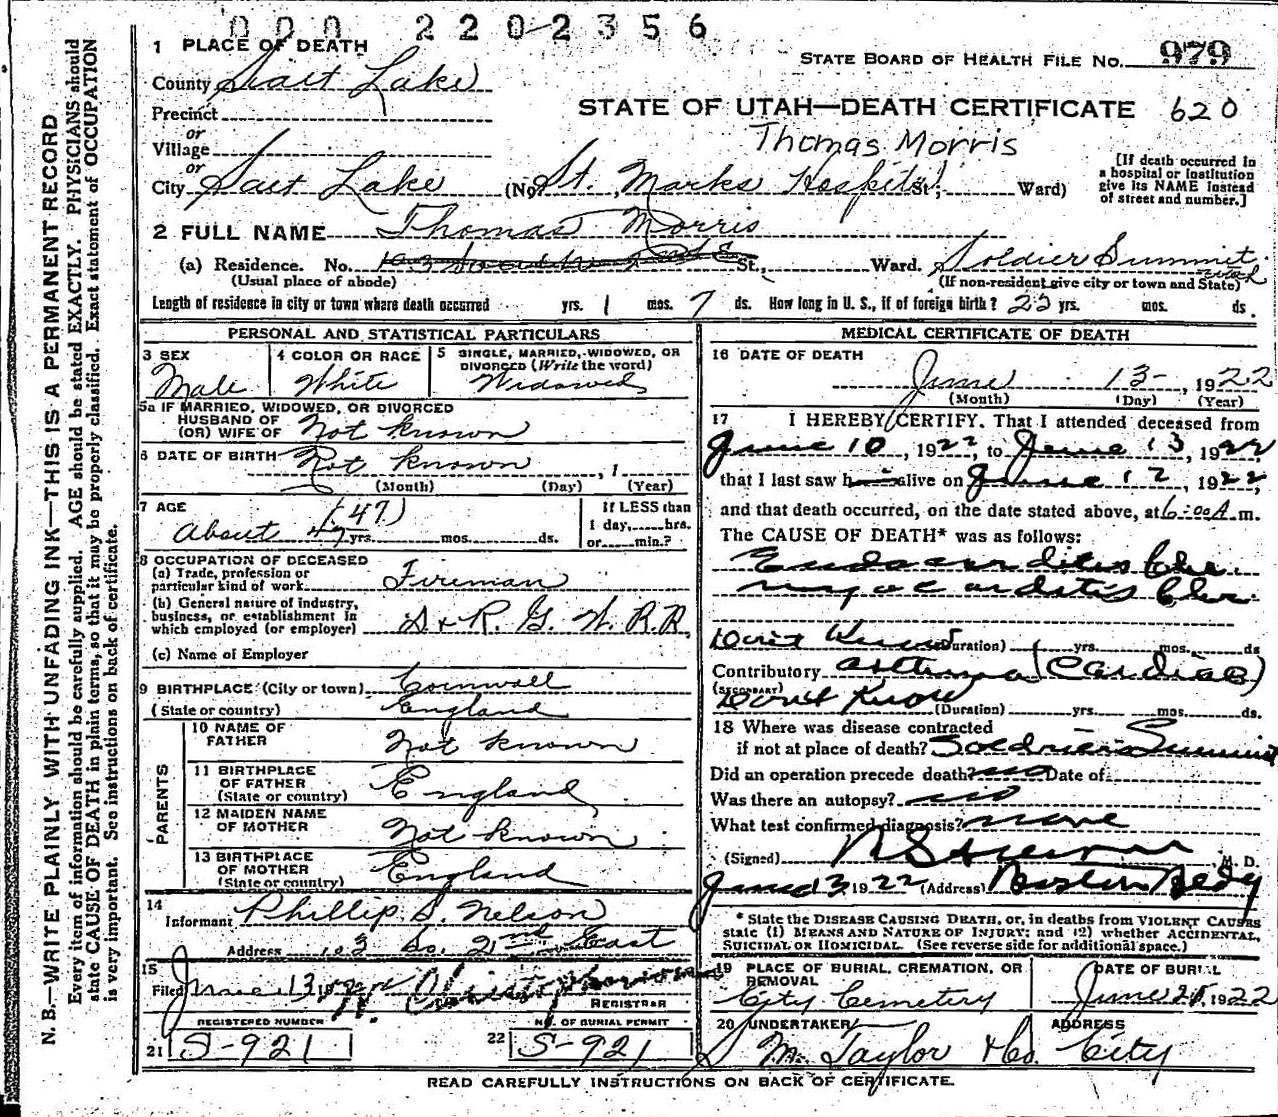 000 2202356
1 PLACE OF DEATH
STATE BOARD OF HEALTH FILE NO. 979
County Salt Lake
STATE OF UTAH—DEATH CERTIFICATE 620
Precinct
or
Village
Thomas Morris
or
City Salt Lake (No. St. Marks Hospital St.; Ward)
[If death occurred in a hospital or institution give its NAME instead of street and number.]
2 FULL NAME Thomas Morris
(a) Residence. No. St., Ward. Soldier Summit Utah
(Usual place of abode) (If non-resident give city or town and State)
Length of residence in city or town where death occurred yrs. 1 mos. 7 ds. How long in U. S., if of foreign birth? 25 yrs. mos. ds.
PERSONAL AND STATISTICAL PARTICULARS
3 SEX
Male
4 COLOR OR RACE
White
5 SINGLE, MARRIED, WIDOWED, OR DIVORCED (Write the word)
Widowed
5a IF MARRIED, WIDOWED, OR DIVORCED
HUSBAND OF
(OR) WIFE OF Not known
6 DATE OF BIRTH Not known , 1
(Month) (Day) (Year)
7 AGE
About 47 (47) yrs. mos. ds.
If LESS than
1 day, hrs.
or min.?
8 OCCUPATION OF DECEASED
(a) Trade, profession or
particular kind of work Fireman
(b) General nature of industry,
business, or establishment in
which employed (or employer) D. & R. G. W. R.R.
(c) Name of Employer
9 BIRTHPLACE (City or town) Cornwall
(State or country) England
PARENTS
10 NAME OF
FATHER Not known
11 BIRTHPLACE
OF FATHER
(State or country) England
12 MAIDEN NAME
OF MOTHER Not known
13 BIRTHPLACE
OF MOTHER
(State or country) England
14
Informant Phillip S. Nelson
Address 103 So. 2nd East
15
Filed June 13 1922 W. Christopherson
REGISTRAR
REGISTERED NUMBER
21 S-921
NO. OF BURIAL PERMIT
22 S-921
MEDICAL CERTIFICATE OF DEATH
16 DATE OF DEATH
June 13 , 1922
(Month) (Day) (Year)
17 I HEREBY CERTIFY, That I attended deceased from
June 10, 1922, to June 13, 1922,
that I last saw him alive on June 12, 1922,
and that death occurred, on the date stated above, at 6:00 A m.
The CAUSE OF DEATH* was as follows:
Endocarditis Chr.
myocarditis Chr
Dont Know (Duration) yrs. mos. ds
Contributory asthma (Cardiac)
(SECONDARY)
Dont Know (Duration) yrs. mos. ds.
18 Where was disease contracted
if not at place of death? Soldier Summit
Did an operation precede death? no Date of
Was there an autopsy? no
What test confirmed diagnosis? none
(Signed) M. D.
June 13 1922 (Address) Boston Bldg
* State the DISEASE CAUSING DEATH, or, in deaths from VIOLENT CAUSES
state (1) MEANS AND NATURE OF INJURY; and (2) whether ACCIDENTAL,
SUICIDAL OR HOMICIDAL. (See reverse side for additional space.)
19 PLACE OF BURIAL, CREMATION, OR
REMOVAL
City Cemetery
DATE OF BURIAL
June 25, 1922
20 UNDERTAKER
S. M. Taylor & Co.
ADDRESS
City
READ CAREFULLY INSTRUCTIONS ON BACK OF CERTIFICATE.
N. B.—WRITE PLAINLY WITH UNFADING INK—THIS IS A PERMANENT RECORD
Every item of information should be carefully supplied. AGE should be stated EXACTLY. PHYSICIANS should
state CAUSE OF DEATH in plain terms, so that it may be properly classified. Exact statement of OCCUPATION
is very important. See instructions on back of certificate.